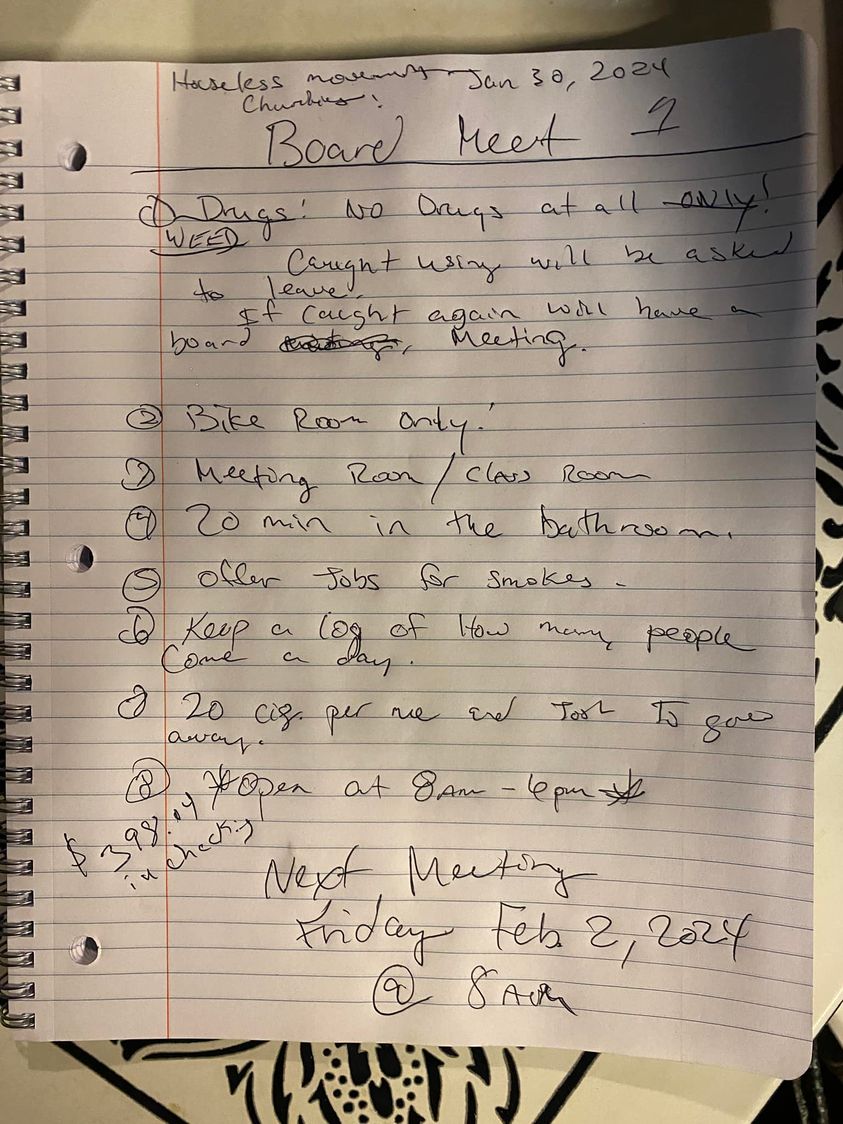 Houseless movement Jan 30, 2024
Board Meet 1
① Drugs! No Drugs at all ONLY!
WEED
Caught using will be asked
to leave.
If caught again will have a
board Meeting.
② Bike Room only!
③ Meeting Room / Class Room
④ 20 min in the bathroom.
⑤ offer Jobs for smokes -
⑥ Keep a log of How many people
Come a day.
⑦ 20 cig. per me and Josh To gave
away.
⑧ *Open at 8Am - 6pm *
$ 398.04
in checking
Next Meeting
Friday Feb 2, 2024
@ 8 Am